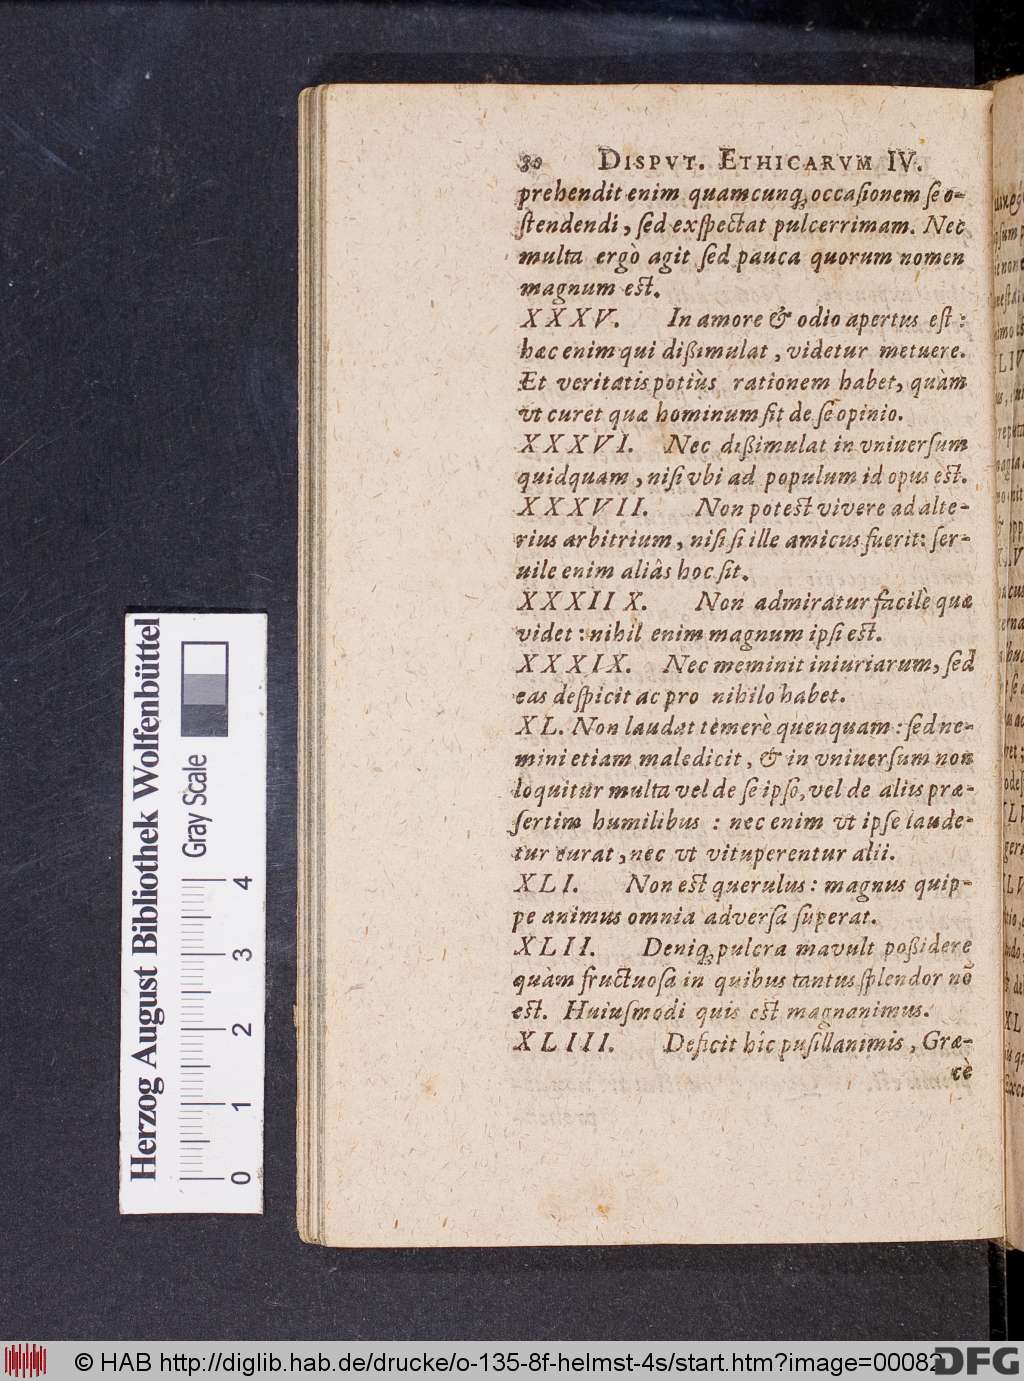 30 DISPVT. ETHICARVM IV.
prehendit enim quamcunq; occaſionem ſe o-
ſtendendi, ſed exſpectat pulcerrimam. Nec
multa ergò agit ſed pauca quorum nomen
magnum eſt.
XXXV. In amore & odio apertus eſt:
hæc enim qui dißimulat, videtur metuere.
Et veritatis potiùs rationem habet, quàm
vt curet quæ hominum ſit de ſe opinio.
XXXVI. Nec dißimulat in vniuerſum
quidquam, niſi vbi ad populum id opus eſt.
XXXVII. Non poteſt vivere ad alte-
rius arbitrium, niſi ſi ille amicus fuerit: ſer-
uile enim aliàs hoc ſit.
XXXIIX. Non admiratur facilè quæ
videt: nihil enim magnum ipſi eſt.
XXXIX. Nec meminit iniuriarum, ſed
eas deſpicit ac pro nihilo habet.
XL. Non laudat temerè quenquam: ſed ne-
mini etiam maledicit, & in vniuerſum non
loquitur multa vel de ſe ipſo, vel de aliis præ-
ſertim humilibus: nec enim vt ipſe laude-
tur curat, nec vt vituperentur alii.
XLI. Non eſt querulus: magnus quip-
pe animus omnia adverſa ſuperat.
XLII. Deniq; pulcra mavult poßidere
quàm fructuoſa in quibus tantus ſplendor nō
eſt. Huiuſmodi quis eſt magnanimus.
XLIII. Deficit hic puſillanimis, Græ-
cè
Herzog August Bibliothek Wolfenbüttel
Gray Scale
0 1 2 3 4
© HAB http://diglib.hab.de/drucke/o-135-8f-helmst-4s/start.htm?image=00082
DFG